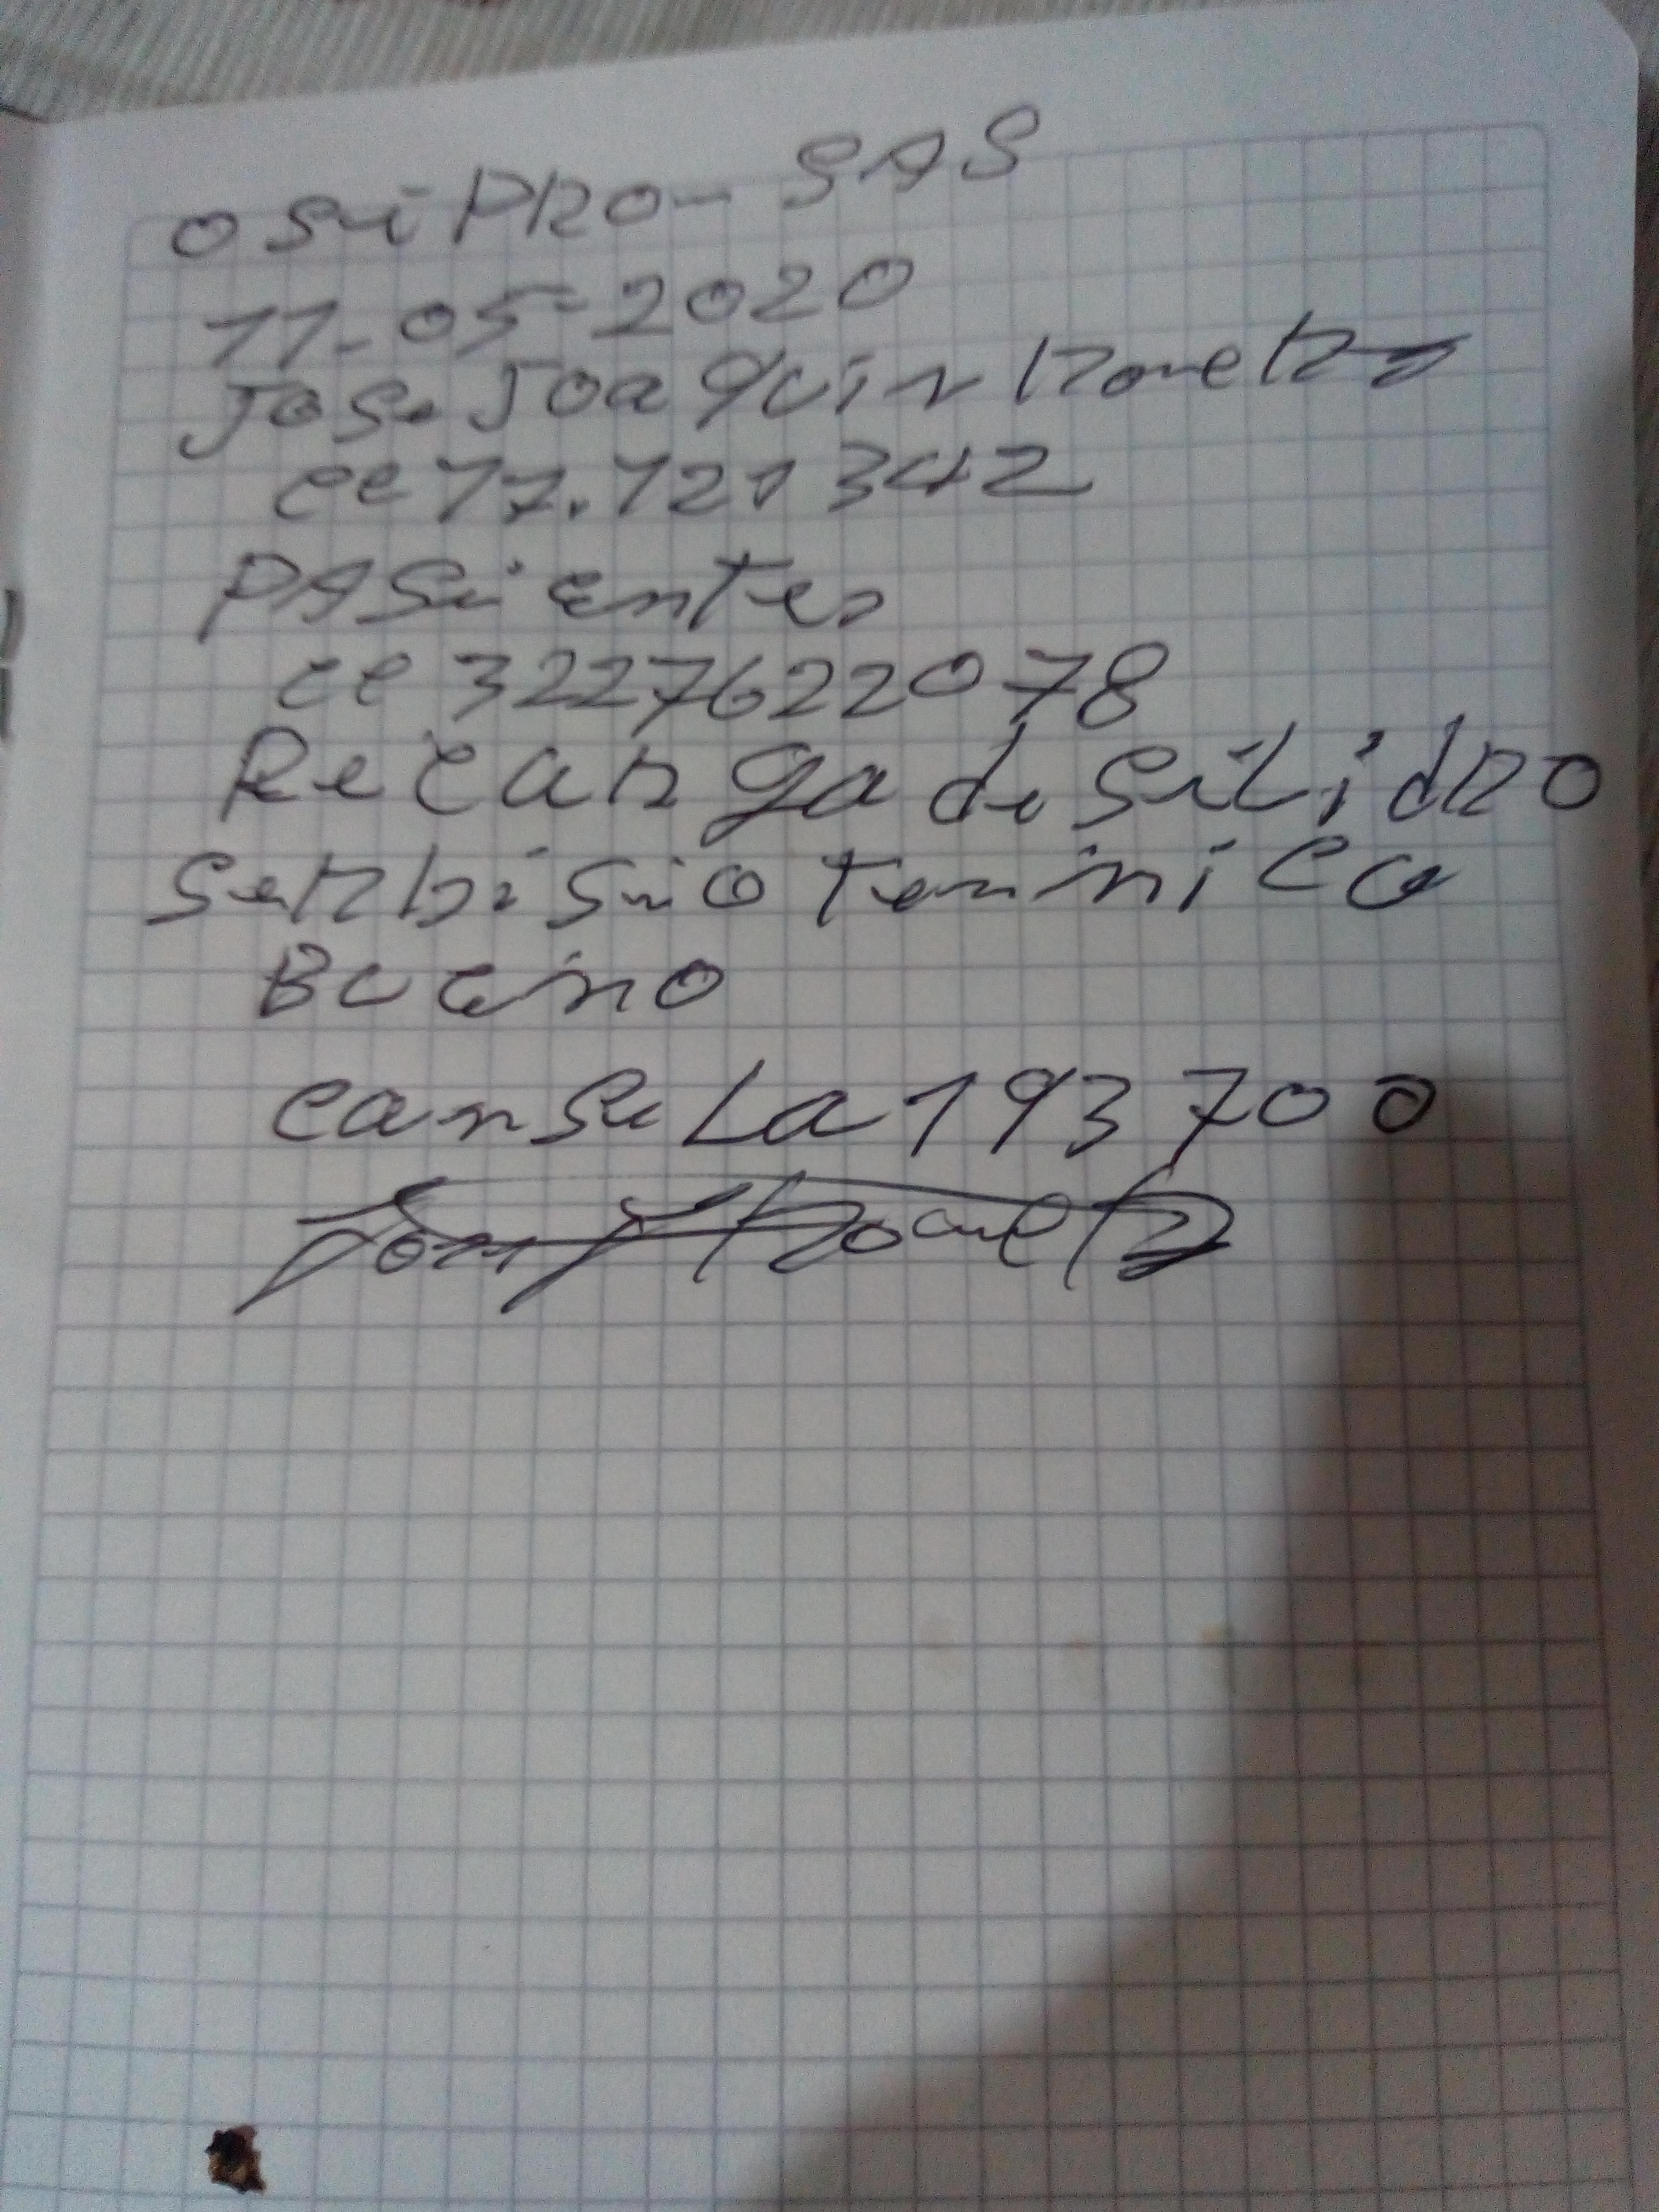 osiPRO- SAS
11-05-2020
Jose Joaquin Romero
cc 17.121342
PASientes
cc 3227622078
Recarga de silidRO
serbisio tennico
Bueno
cansela 193700